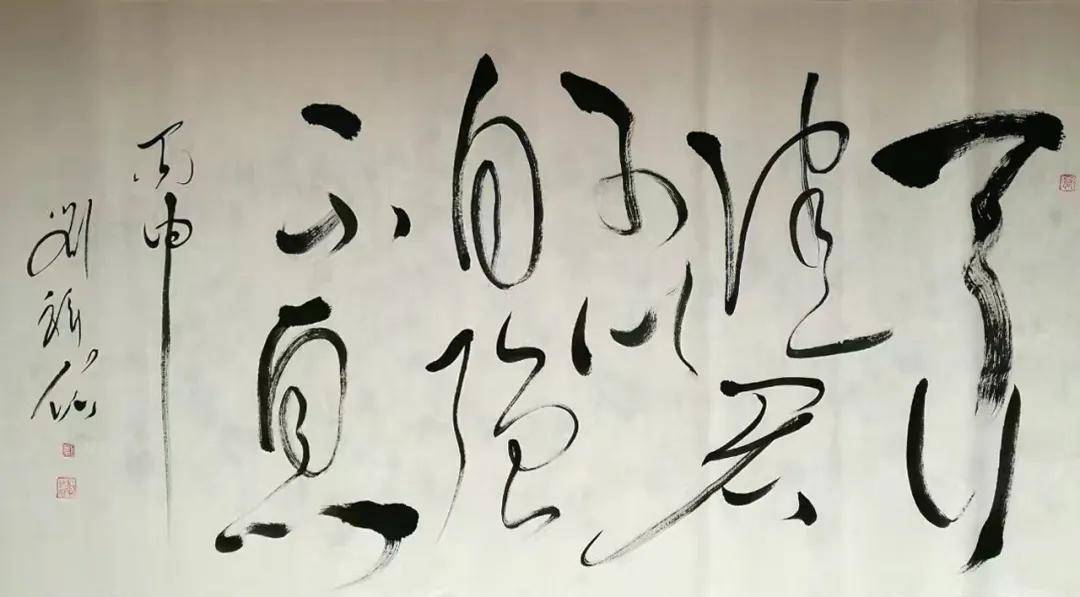 天行
健君
子以
自强
不息
丙申
劉